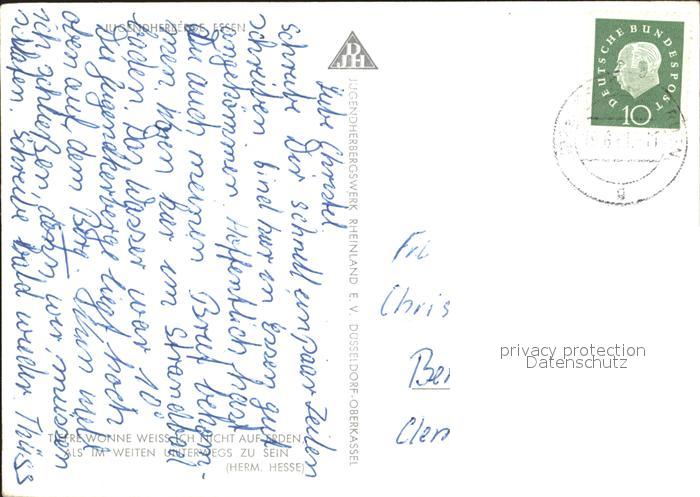 JUGENDHERBERGE ESSEN
Liebe Christel
schreibe Dir schnell ein paar Zeilen
schreiben sind hier in Essen gut
angekommen. Hoffentlich hast
Du auch meinen Brief bekom-
men. waren hier im Strandbad
baden Das Wasser war 10°
Die Jugendherberge liegt hoch
oben auf dem Berg. Nun will
ich schließen, denn wir müssen
schlafen. Schreibe bald wieder Tschüss
TIEFRE WONNE WEISS ICH NICHT AUF ERDEN,
ALS IM WEITEN UNTERWEGS ZU SEIN
(HERM. HESSE)
JUGENDHERBERGSWERK RHEINLAND E. V. DÜSSELDORF-OBERKASSEL
DJH
DEUTSCHE BUNDESPOST
10
g
Frl
Chris
Ber
Clem
privacy protection
Datenschutz